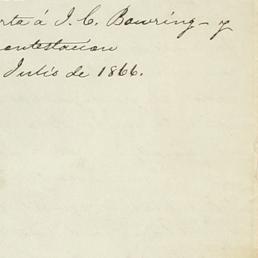 rta á J. C. Bowring - y
contestacion
Julio de 1866.